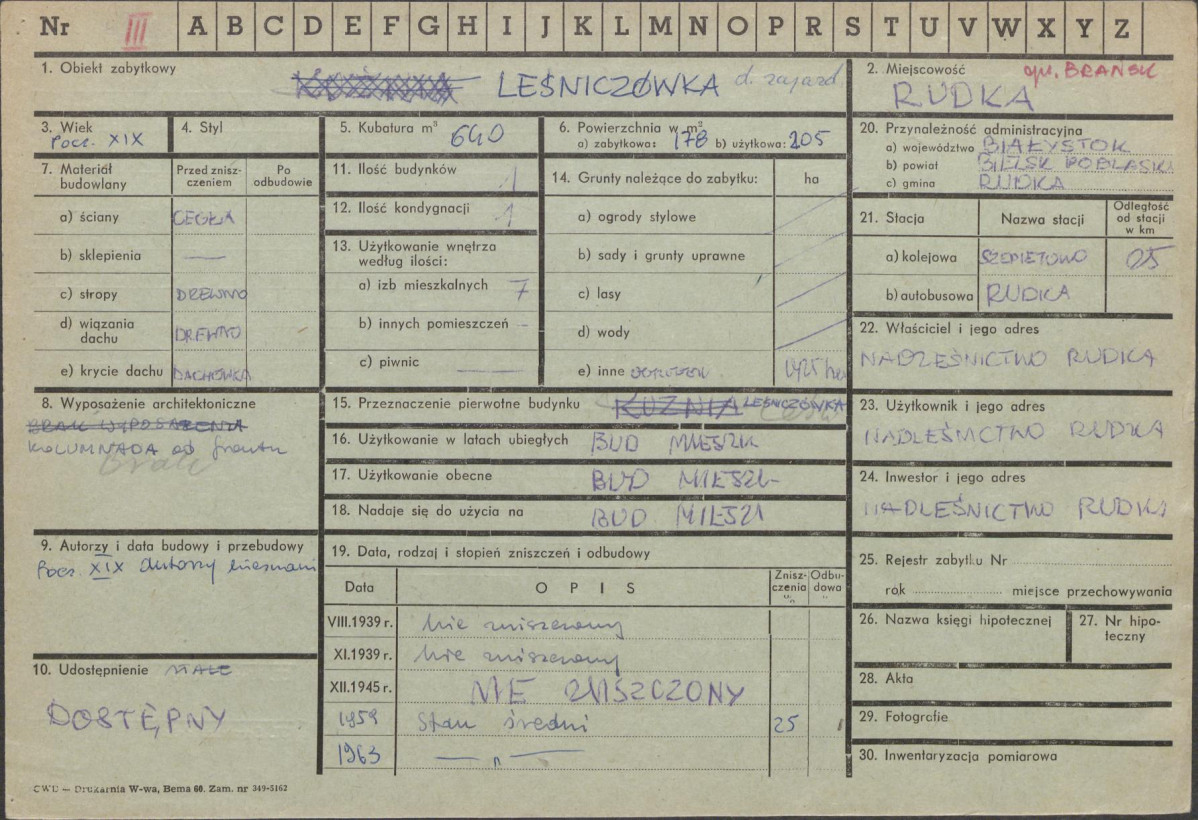 Nr III A B C D E F G H I J K L M N O P R S T U V W X Y Z
1. Obiekt zabytkowy
LEŚNICZÓWKA d. zajazd
2. Miejscowość gm. BRAŃSK
RUDKA
3. Wiek
Pocz. XIX
4. Styl
5. Kubatura m³ 640
6. Powierzchnia w m²
a) zabytkowa: 178 b) użytkowa: 205
20. Przynależność administracyjna
a) województwo BIAŁYSTOK
b) powiat BIELSK PODLASKI
c) gmina RUDKA
7. Materiał budowlany
Przed zniszczeniem
Po odbudowie
a) ściany CEGŁA
b) sklepienia —
c) stropy DREWNO
d) wiązania dachu DREWNO
e) krycie dachu DACHÓWKA
11. Ilość budynków 1
12. Ilość kondygnacji 1
13. Użytkowanie wnętrza według ilości:
a) izb mieszkalnych 7
b) innych pomieszczeń -
c) piwnic —
14. Grunty należące do zabytku:
ha
a) ogrody stylowe
b) sady i grunty uprawne
c) lasy
d) wody
e) inne
21. Stacja
Nazwa stacji
Odległość od stacji w km
a) kolejowa SZEPIETOWO 25
b) autobusowa RUDKA
22. Właściciel i jego adres
NADLEŚNICTWO RUDKA
8. Wyposażenie architektoniczne
BRAK WYPOSAŻENIA
KOLUMNADA od frontu
Brak
15. Przeznaczenie pierwotne budynku KUŹNIA LEŚNICZÓWKA
16. Użytkowanie w latach ubiegłych BUD MIESZK
17. Użytkowanie obecne BUD MIESZK
18. Nadaje się do użycia na BUD MIESZK
23. Użytkownik i jego adres
NADLEŚNICTWO RUDKA
24. Inwestor i jego adres
NADLEŚNICTWO RUDKA
9. Autorzy i data budowy i przebudowy
Pocz. XIX Autorzy nieznani
19. Data, rodzaj i stopień zniszczeń i odbudowy
Data
OPIS
Zniszczenia
Odbudowa
VIII.1939 r. Nie zniszczony
XI.1939 r. Nie zniszczony
XII.1945 r. NIE ZNISZCZONY
1959 Stan średni 25
1963 — " —
25. Rejestr zabytku Nr
rok miejsce przechowywania
26. Nazwa księgi hipotecznej
27. Nr hipoteczny
28. Akta
29. Fotografie
30. Inwentaryzacja pomiarowa
10. Udostępnienie MAŁE
DOSTĘPNY
CWD — Drukarnia W-wa, Bema 60. Zam. nr 349-5162